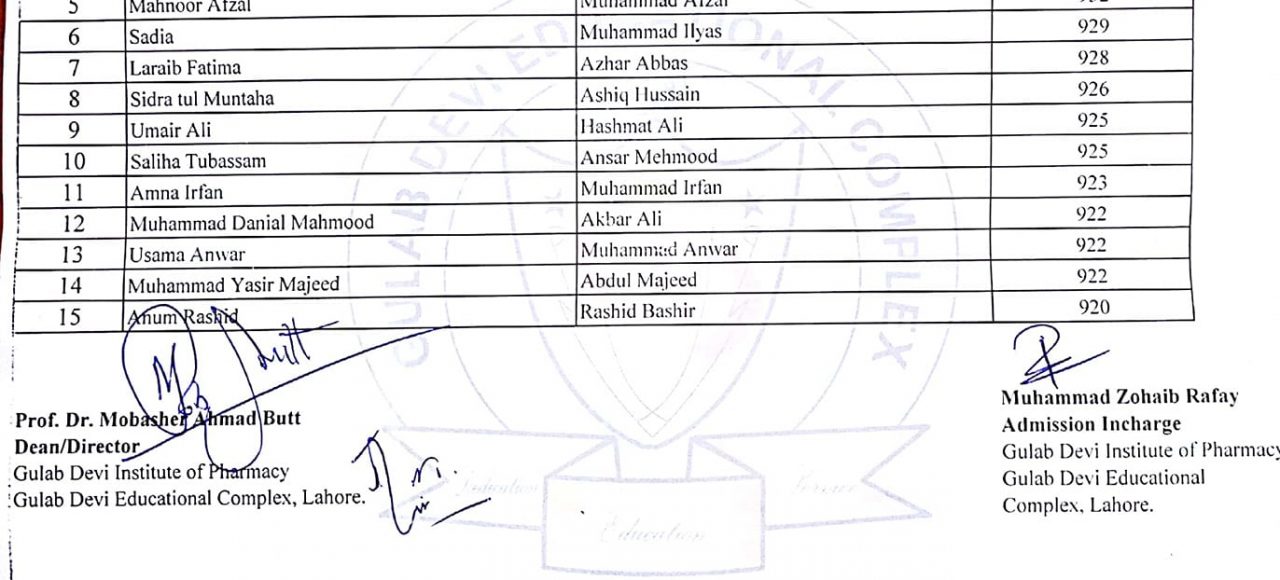 5 Mahnoor Afzal Muhammad Afzal 932
6 Sadia Muhammad Ilyas 929
7 Laraib Fatima Azhar Abbas 928
8 Sidra tul Muntaha Ashiq Hussain 926
9 Umair Ali Hashmat Ali 925
10 Saliha Tubassam Ansar Mehmood 925
11 Amna Irfan Muhammad Irfan 923
12 Muhammad Danial Mahmood Akbar Ali 922
13 Usama Anwar Muhammad Anwar 922
14 Muhammad Yasir Majeed Abdul Majeed 922
15 Anum Rashid Rashid Bashir 920
GULAB DEVI EDUCATIONAL COMPLEX
Butt
Prof. Dr. Mobasher Ahmad Butt
Dean/Director
Gulab Devi Institute of Pharmacy
Gulab Devi Educational Complex, Lahore.
Muhammad Zohaib Rafay
Admission Incharge
Gulab Devi Institute of Pharmacy
Gulab Devi Educational
Complex, Lahore.
Dedication
Education
Service